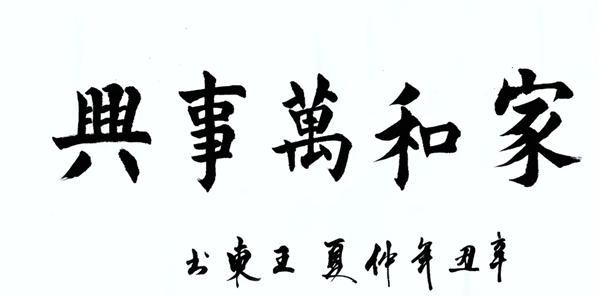 家和萬事興
辛丑年仲夏 王東书